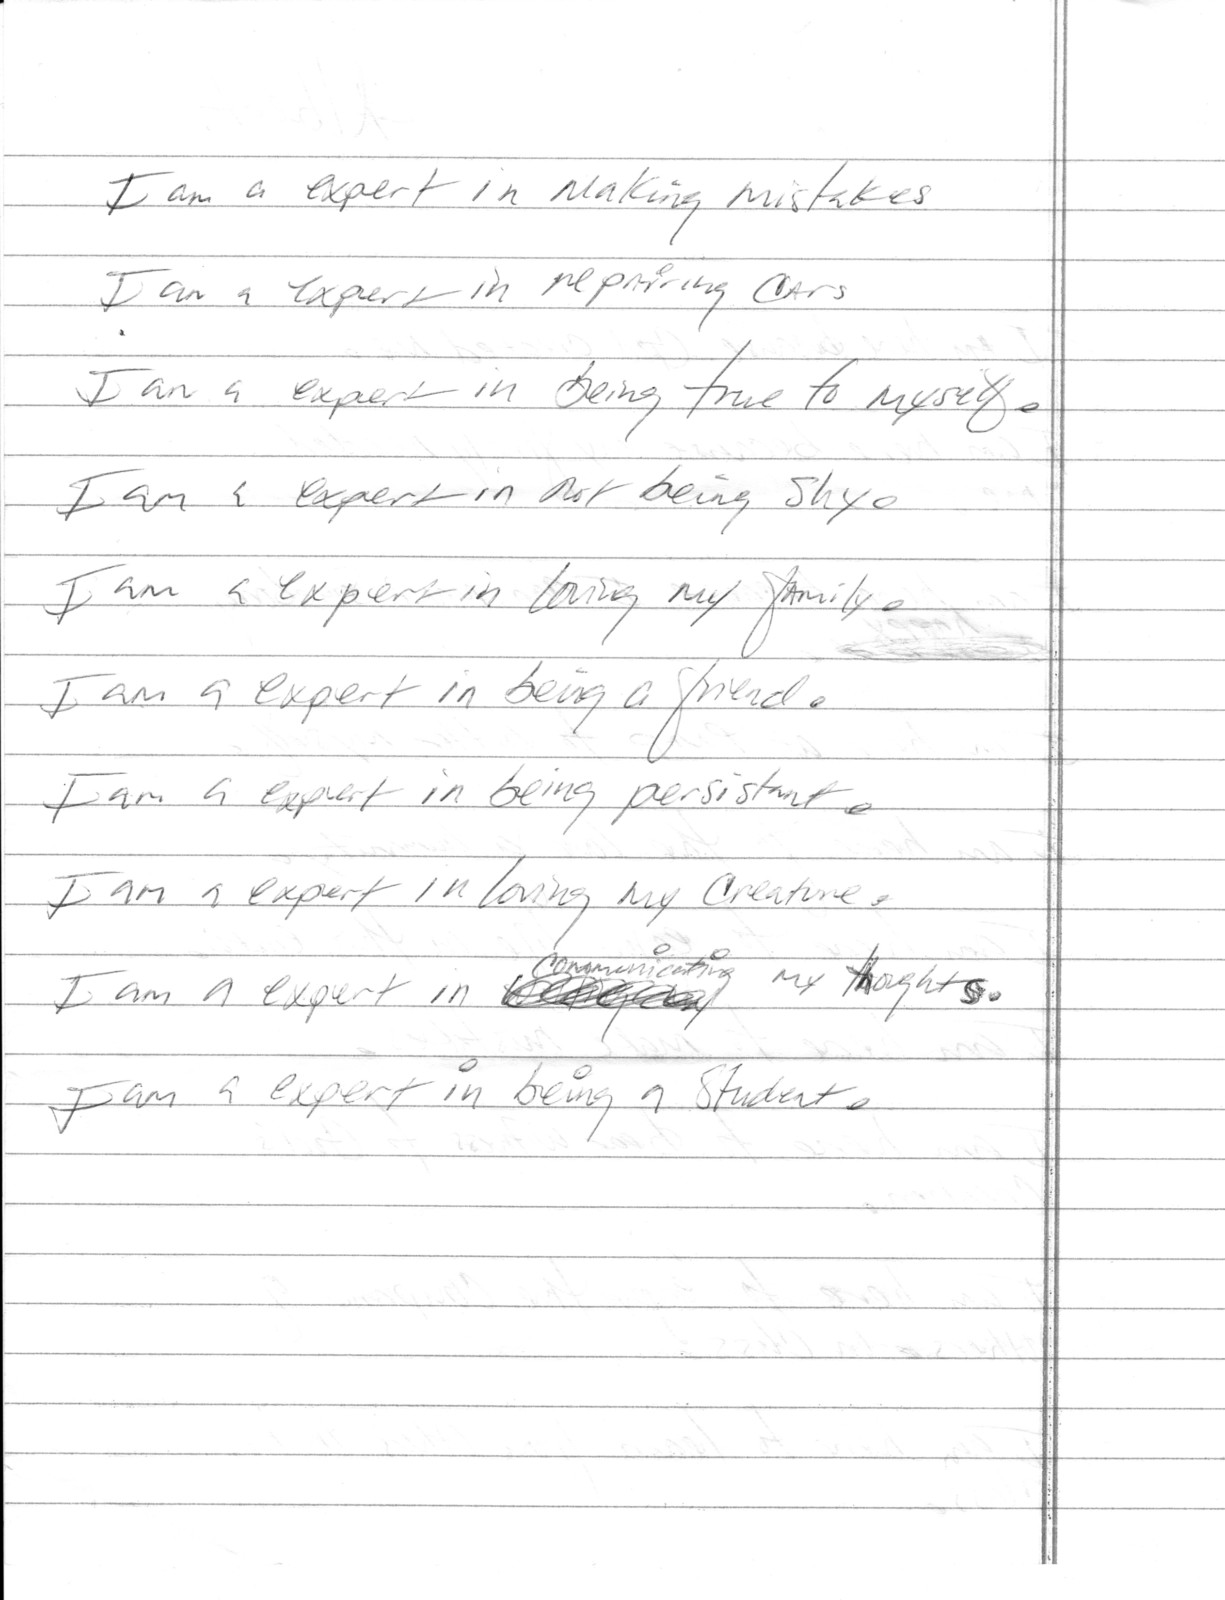 I am a expert in Making mistakes
I am a expert in repairing cars
I am a expert in being true to myself.
I am a expert in not being shy.
I am a expert in loving my family.
I am a expert in being a friend.
I am a expert in being persistant.
I am a expert in loving my Creature.
I am a expert in communicating my thoughts.
I am a expert in being a Student.